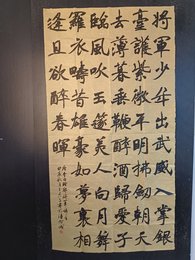 將軍少年出武威入掌銀
臺護紫微平明拂劍朝天
去薄暮垂鞭醉酒歸愛子
臨風吹玉笛美人向月舞
羅衣疇昔雄豪如夢裏相
逢且欲醉春暉